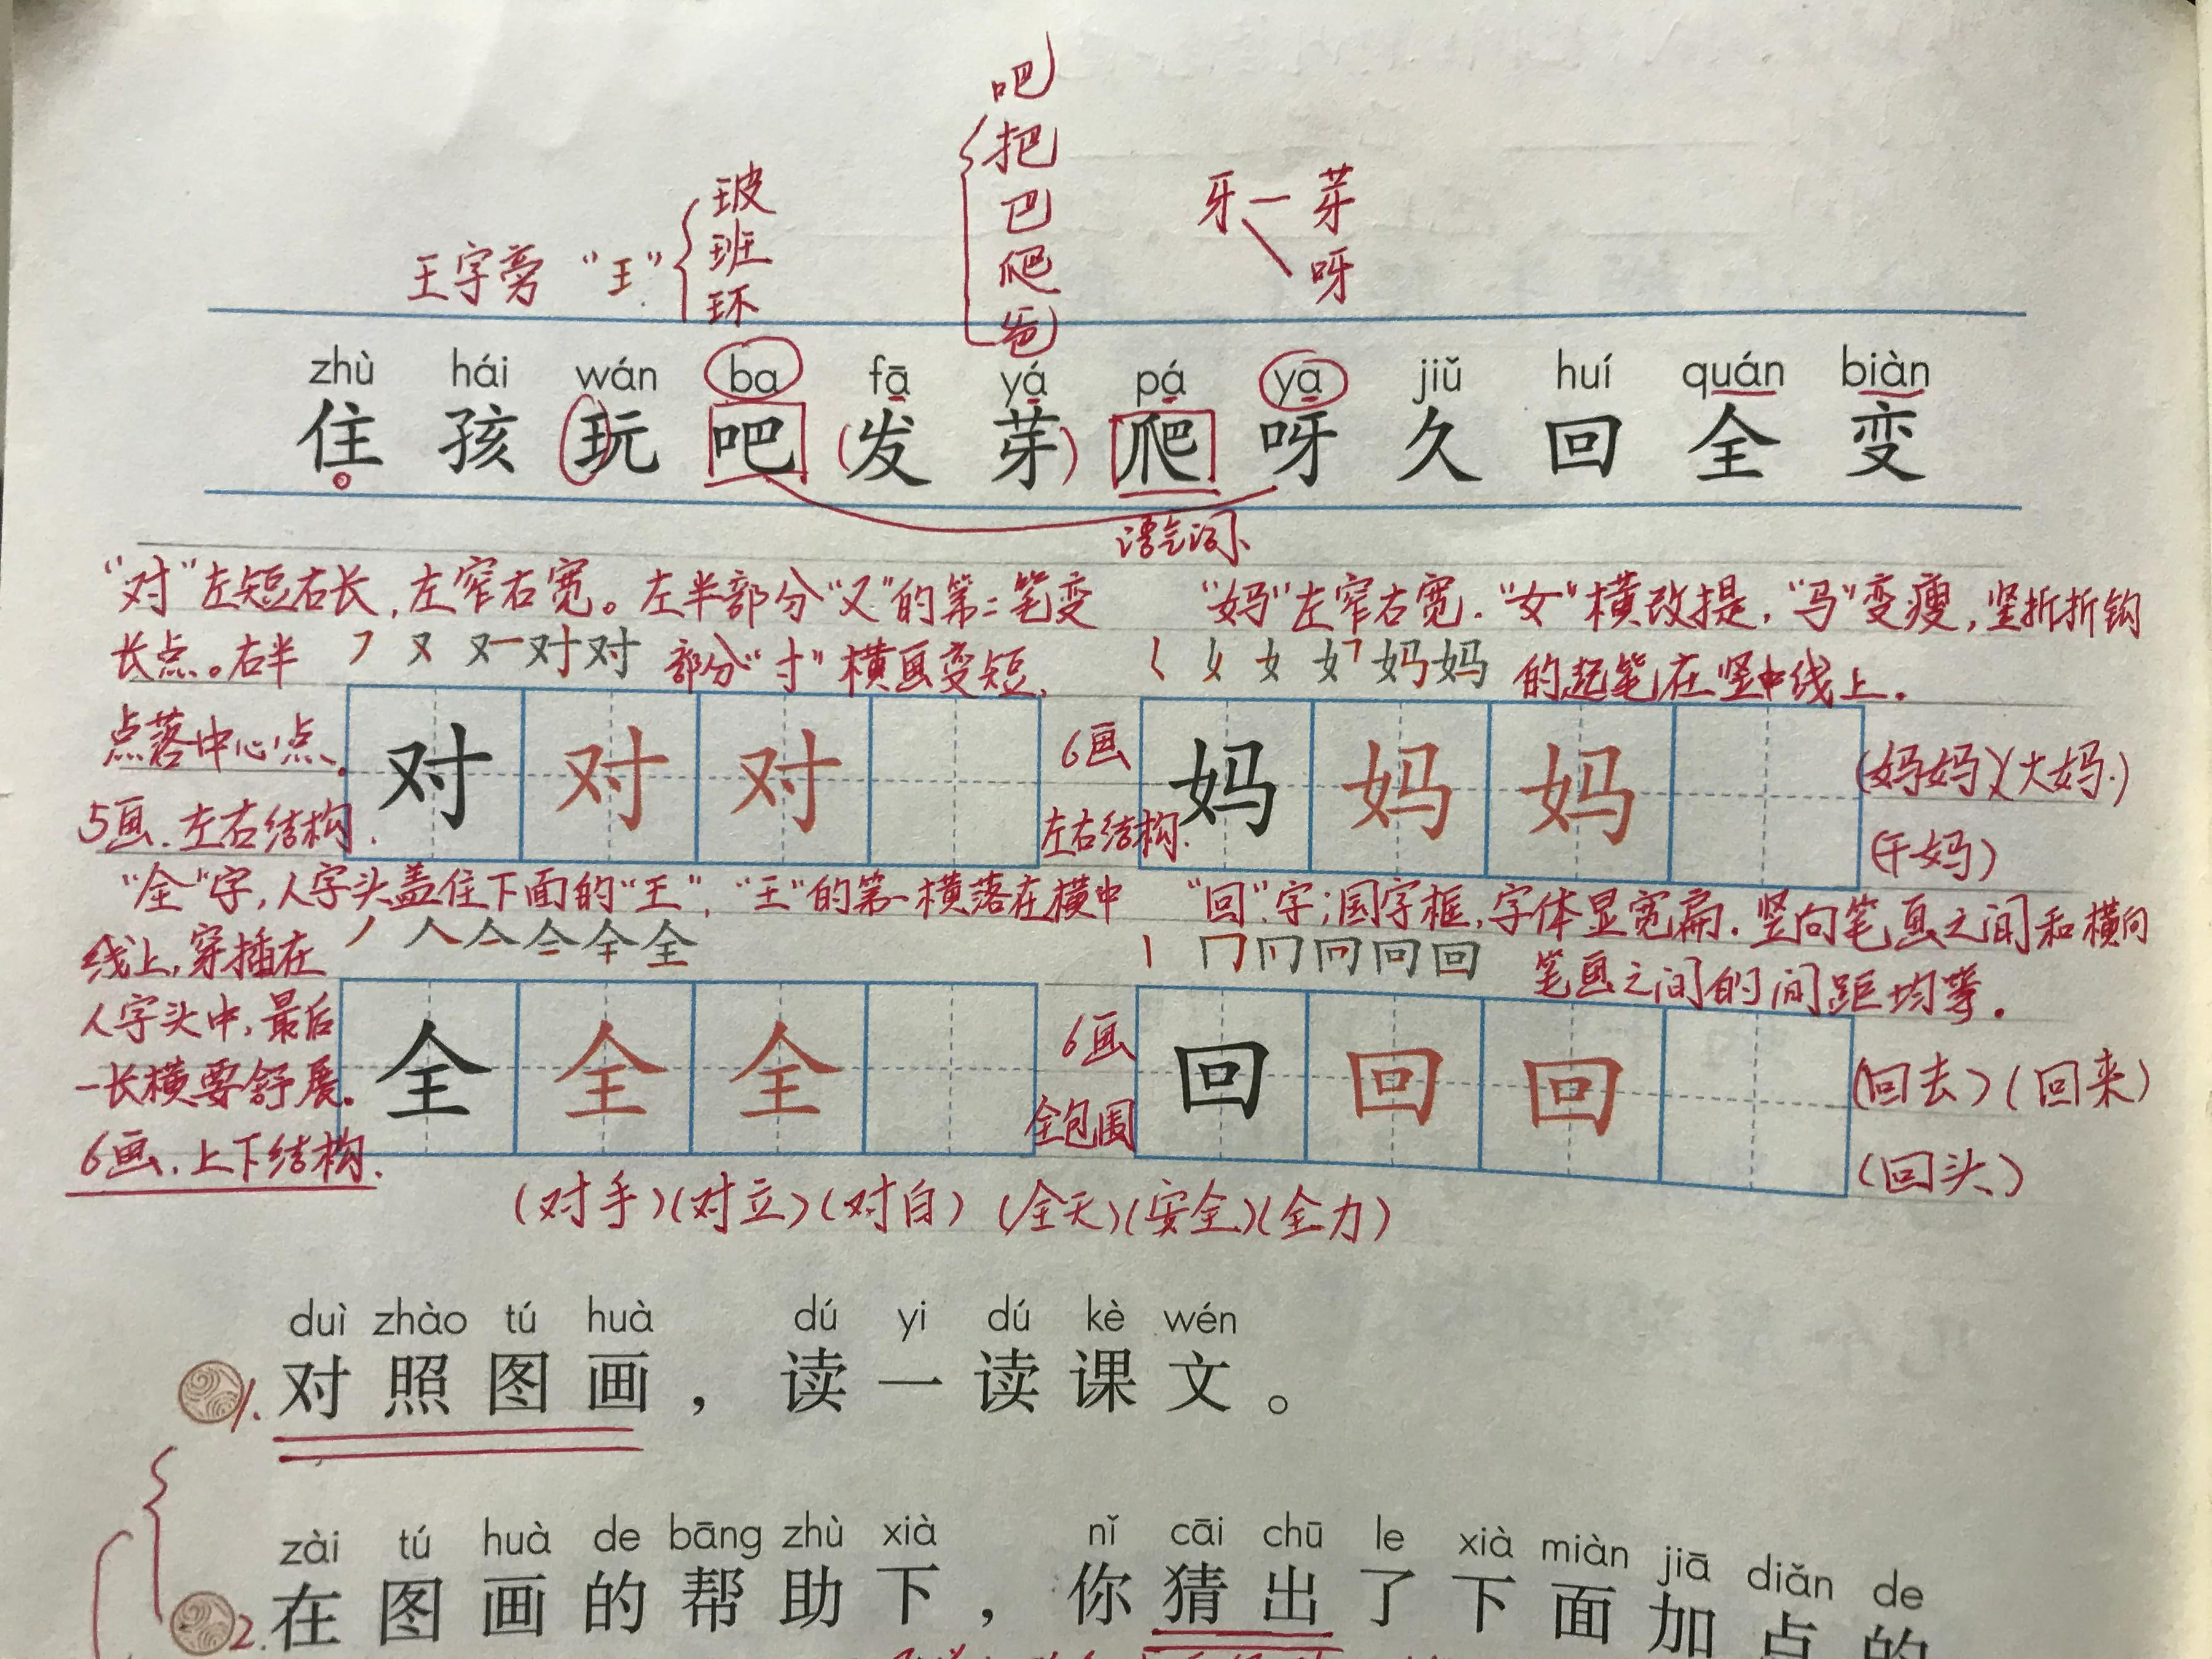 吧
把
巴
爬
爸
玻
班
环
王字旁 “王”
牙 — 芽
呀
zhù hái wán ba fā yá pá ya jiǔ huí quán biàn
住 孩 玩 吧 发 芽 爬 呀 久 回 全 变
语气词
“对”左短右长，左窄右宽。左半部分“又”的第二笔变
长点。右半 部分“寸”横画变短，
点落中心点、
5画、左右结构.
フ 又 对 对
“妈”左窄右宽.“女”横改提，“马”变瘦，竖折折钩
的起笔在竖中线上.
女 妈 妈
对 对 对
6画
左右结构.
妈 妈 妈
(妈妈)(大妈)
(干妈)
“全”字，人字头盖住下面的“王”，“王”的第一横落在横中
线上，穿插在
人字头中，最后
一长横要舒展.
6画、上下结构.
丿 人 亼 仝 全
“回”字；国字框，字体显宽扁.竖向笔画之间和横向
笔画之间的间距均等.
丨 冂 冋 回
全 全 全
6画
全包围
回 回 回
(回去)(回来)
(回头)
(对手)(对立)(对白) (全天)(安全)(全力)
duì zhào tú huà dú yi dú kè wén
1. 对照图画，读一读课文。
zài tú huà de bāng zhù xià nǐ cāi chū le xià miàn jiā diǎn de
2. 在图画的帮助下，你猜出了下面加点的